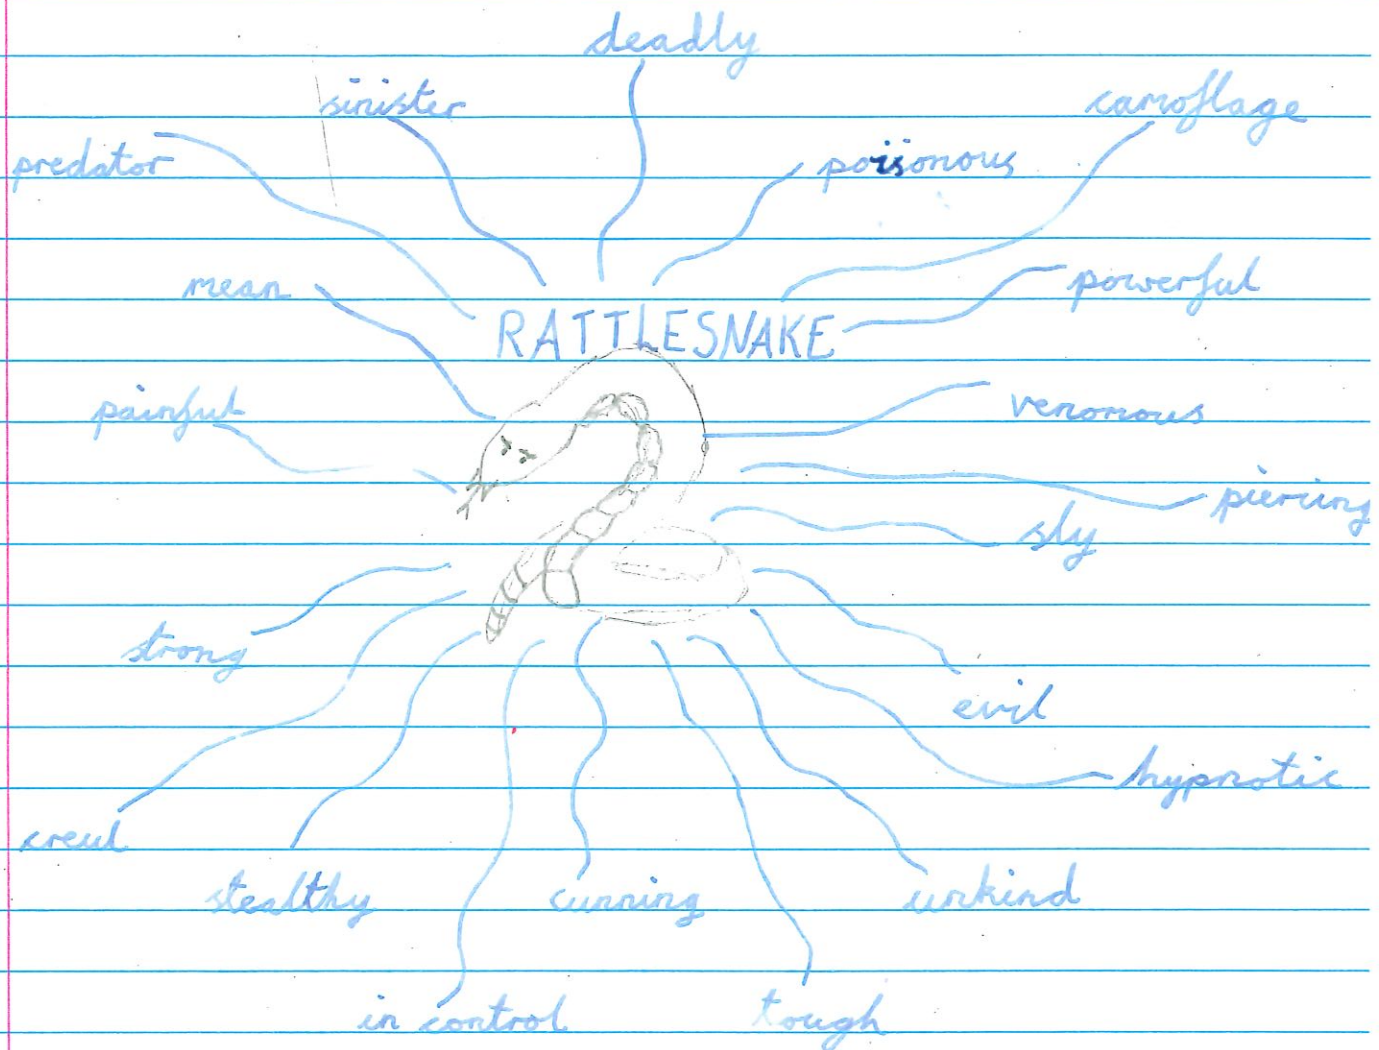 deadly
sinister
camoflage
predator
poisonous
mean
powerful
RATTLESNAKE
painful
venomous
piercing
sly
strong
evil
hypnotic
creul
stealthy
cunning
unkind
in control
tough